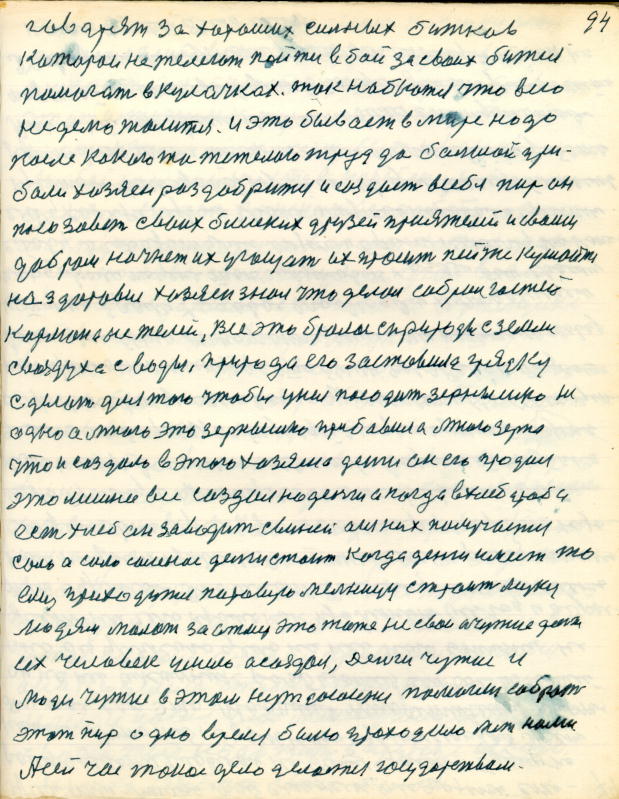 94
говорят за хороших сильных битков
которои нажелают пойти в бой за своих битися
помогат в кулачках. так набютя что всего
недемо таится. и это бывает в мире надо
после какогото тежелого труда большой при-
бали хозяен раздобрится и создает всебя пир он
позавет своих близких друзей приятелей и своим
добром начнет их угощат их просит пейте кушайте
на здоровия хозяен знал что делал собрал гостей
кармана не жалей, Все это бралос сприроды сземли
своздуха с воды, природа его заставила грядку
сделат для того чтобы унея посодит зернышко не
одно а много это зернышко прибавила много зерна
что и создало в этого хозяена денги он его продал
это лишнея все создал на денги а когда в хлебороба
ест хлеб он заводит свиней а из них получается
сало а сало соленое денги стоит когда денги имеит то
ему приходится паровую мелницу строит муку
людям молот за отмер это тоже не свое а чужие денги
их человек умело асоздал, Денги чужие и
люди чужие в этом нуждалися помогли собрат
этот пир одно время было проходило меж нами
А сей час такое дело делается государством.